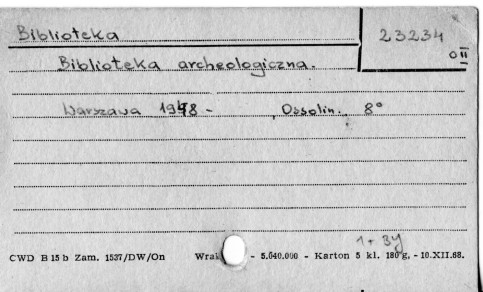 Biblioteka
23234
OII
Biblioteka archeologiczna.
Warszawa 1948 - , Ossolin. 8°
1 + 34
CWD B 15 b Zam. 1537/DW/On Wrak - 5.640.000 - Karton 5 kl. 180 g. - 10.XII.68.